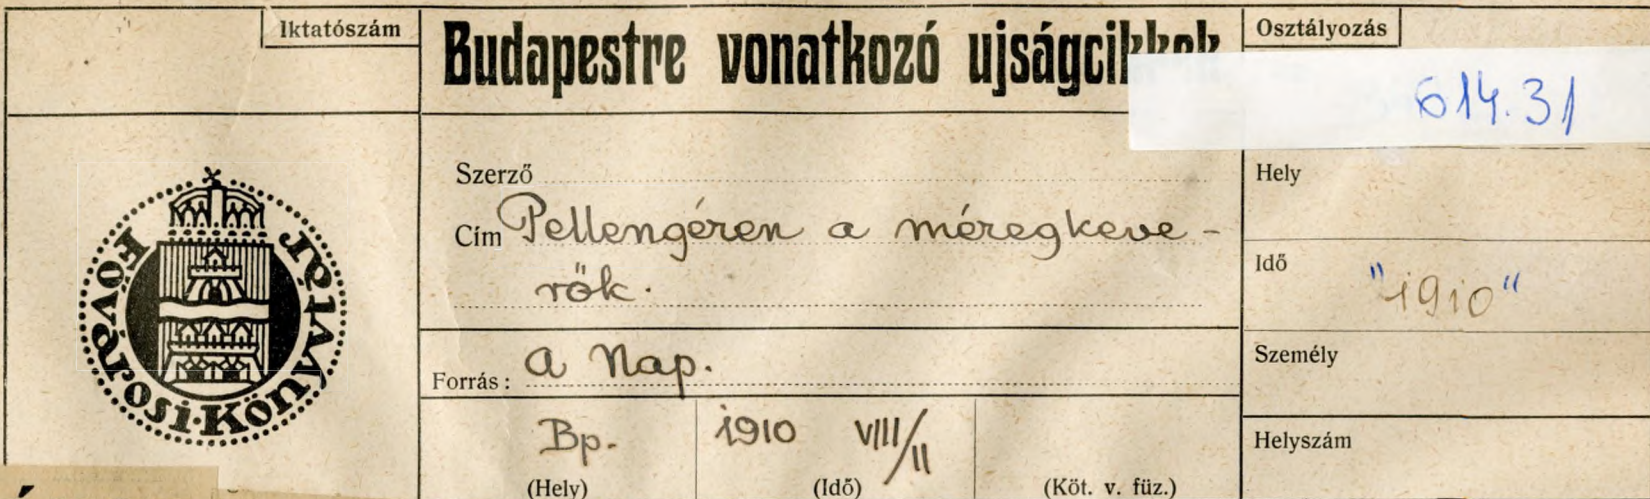 Iktatószám
Budapestre vonatkozó ujságcikkek
Osztályozás
614.31
Fővárosi·Könyvtár
Szerző
Cím Pellengéren a méregkeve-
rők.
Forrás: A Nap.
Bp.
(Hely)
1910 VIII/11
(Idő)
(Köt. v. füz.)
Hely
Idő
"1910"
Személy
Helyszám